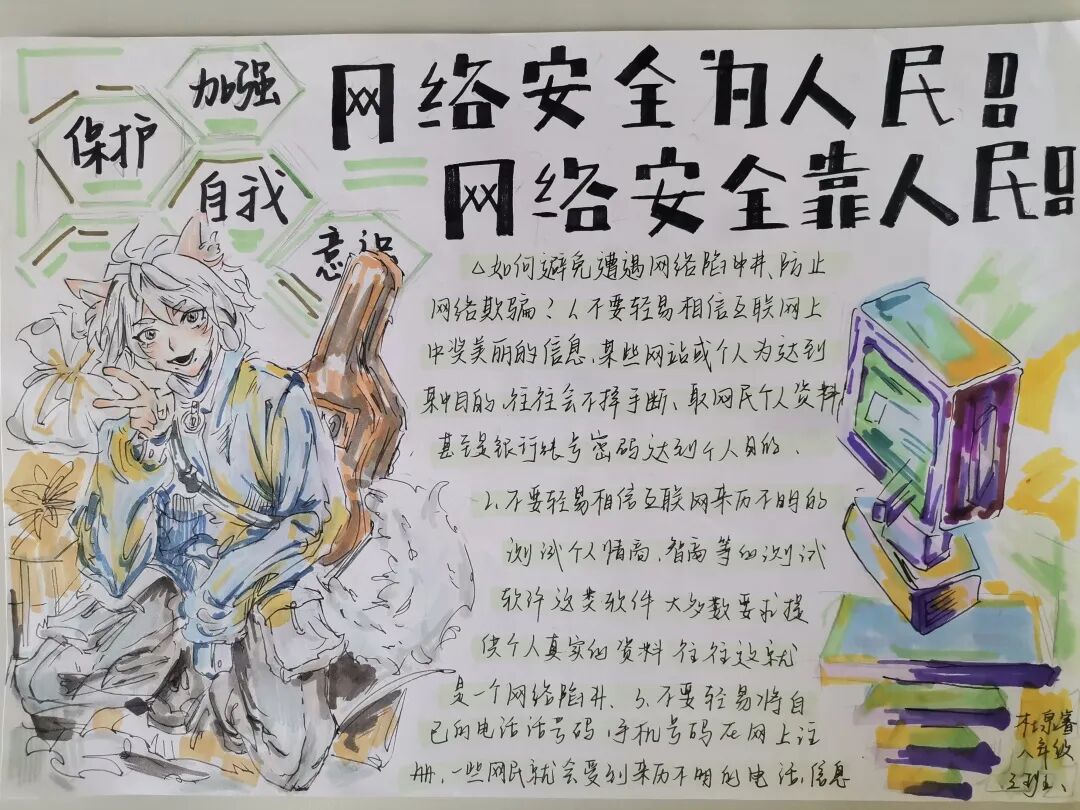 加强
保护
自我
意识
网络安全为人民!
网络安全靠人民!
△如何避免遭遇网络陷阱、防止
网络欺骗？1、不要轻易相信互联网上
中奖美丽的信息、某些网站或个人为达到
某种目的、往往会不择手断、取网民个人资料,
甚至是银行账号密码达到个人目的、
2、不要轻易相信互联网来历不明的
测试个人情商、智商等的测试
软件这类软件大多数要求提
供个人真实的资料往往这就
是一个网络陷井、3、不要轻易将自
己的电话话号码、手机号码在网上注
册、一些网民就会受到来历不明的电话、信息
八年级